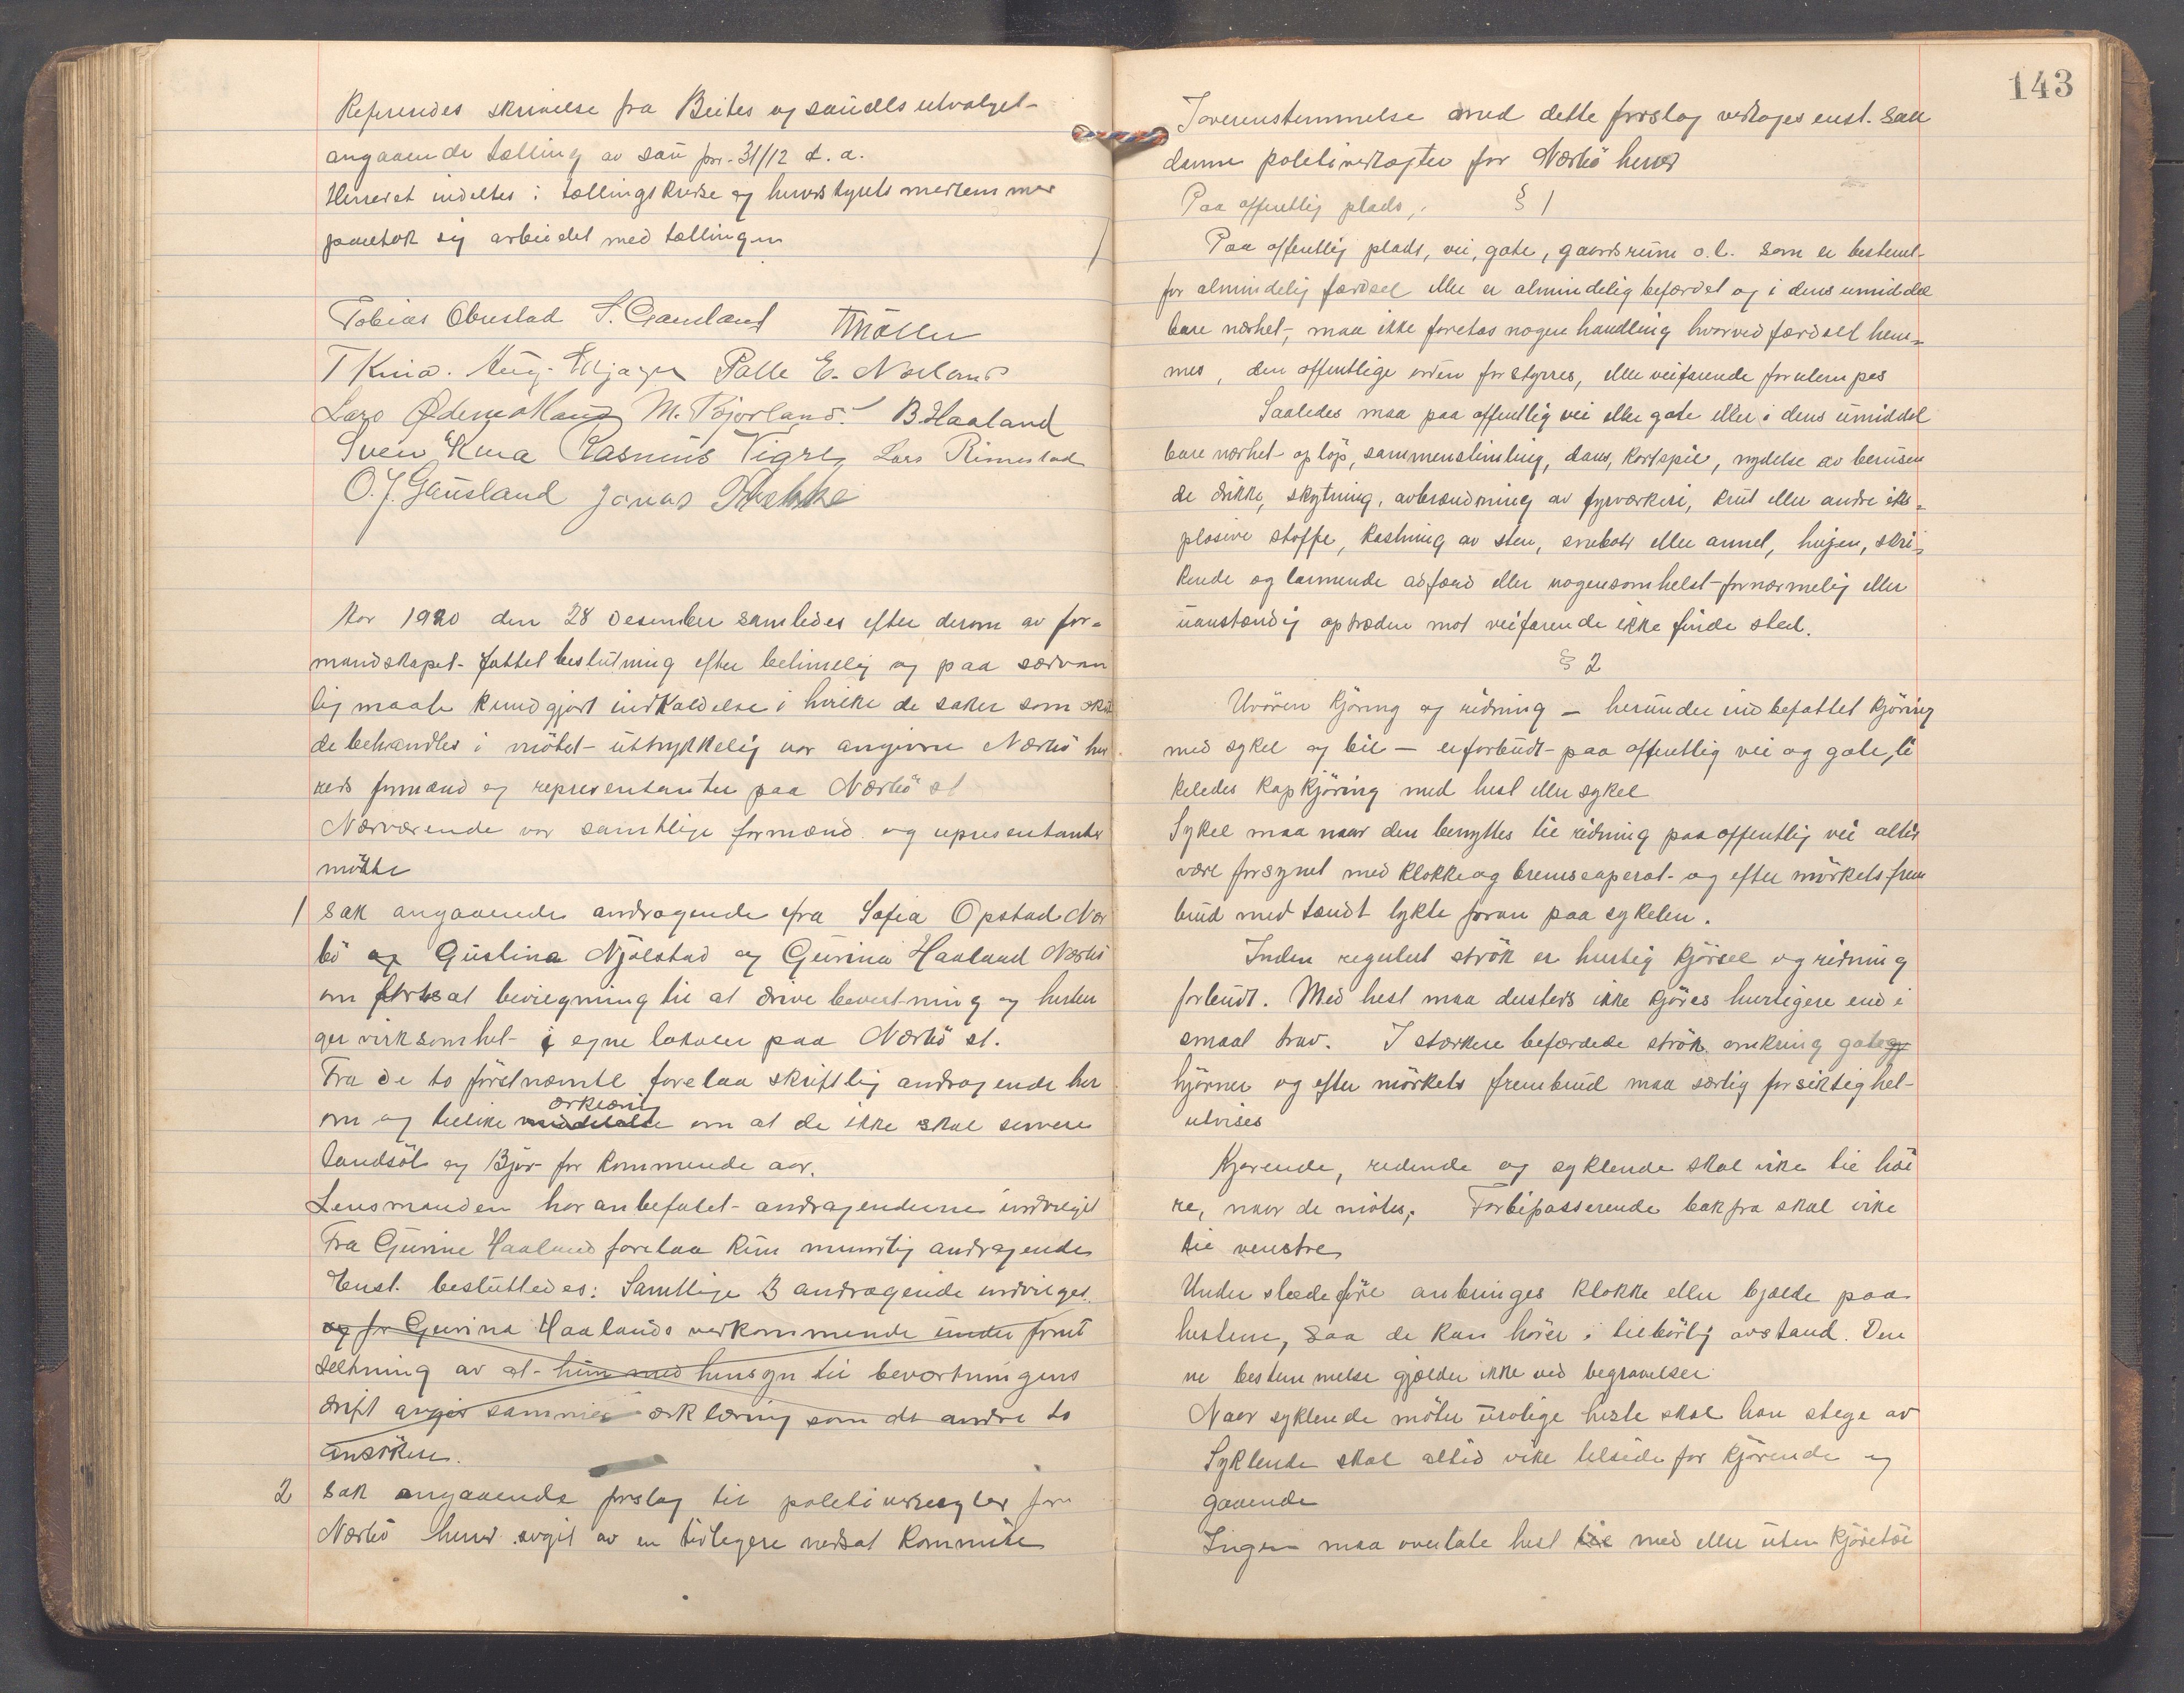 Refereredes skrivelse fra Beites og saueals utvalget
angaaende tælling av sau pr. 31/12 d. a.
Herredet inddeltes i tællingskredse og herredstyrets medlemmer
paatok sig arbeidet med tællingen
Tobias Obrestad S. Gausland TMöller
T Kvia. Aug. Palle E. Nærland
Lars Ødemotland M. Bjorland. B Haaland
Sven Kvia Rasmus Vigre Lars Rimestad
O. J. Gausland Jonas
Aar 1920 den 28 desember samledes efter derom av for-
mandskapet fattet beslutning efter betimelig og paa sædvan
lig maate kundgjort indkaldelse i hvilke de saker som skul
de behandles i mötet uttrykkelig var angivne Nærbö her
reds formænd og representanter paa Nærbö st
Nærværende var samtlige formænd og representanter
mötte
1 Sak angaaende andragende fra Sofia Opstad Nær
bö og Gustina Njölstad og Gurina Haaland Nærbö
om fortsat bevilgning til at drive bevertning og herber
ger virksomhet i egne lokaler paa Nærbö st.
Fra de to förstnævnte forelaa skriftlig andragende her
om og tillike meddelelse erklæring om at de ikke skal servere
landsöl og Bjor for kommende aar.
Lensmanden har anbefalet andragenderne indvilget
Fra Gurine Haaland forelaa kun mundtlig andragende
Enst. besluttedes: Samtlige 3 andragende indvilget.
og for Gurina Haalands vedkommende under forut
sætning av at hun med hensyn til bevertningens
drift avgir samme erklæring som de andre to
ansökere.
2 Sak angaaende forslag til politivedtægter for
Nærbö herred avgit av en tidligere nedsat kommite
143
I overensstemmelse med dette forslag vedtoges enst. saa
danne politivedtægter for Nærbö herred
Paa offentlig plads, § 1
Paa offentlig plads, vei, gate, gaardsrum o. l. som er bestemt
for almindelig færdsel eller er almindelig befærdet og i dens umiddel
bare nærhet, maa ikke foretas nogen handling hvorved færdsel hem-
mes, den offentlige orden forstyrres, eller veifarende forulempes
Saaledes maa paa offentlig vei eller gate eller i dens umiddel
bare nærhet opløp, sammenstimling, dans, kortspil, nydelse av berusen
de drikke, skytning, avbrændning av fyrverkeri, krut eller andre eks-
plosive stoffe, kastning av sten, snebold eller annet, hujen, skri-
kende og larmende adfærd eller nogensomhelst fornærmelig eller
uanstændig optræden mot veifarende ikke finde sted.
§ 2
Uvören kjöring og ridning — herunder indbefattet kjöring
med sykel og bil — er forbudt paa offentlig vei og gate, li
keledes kapkjöring med hest eller sykel
Sykel maa naar den benyttes til ridning paa offentlig vei altid
være forsynet med klokke og bremseaperat og efter mörkets frem
brud med tændt lykte foran paa sykelen.
Inden regulert strök er hurtig kjörsel og ridning
forbudt. Med hest maa desteds ikke kjöres hurtigere end i
smaat trav. I stærkere befærdede strök omkring gateg
hjörner og efter mörkets frembrud maa særlig forsiktighet
utvises
Kjorende, ridende og syklende skal vike til höi
re, naar de mötes, Forbipasserende bakfra skal vike
til venstre
Under slædeföre anbringes klokke eller bjælde paa
hestene, saa de kan höres i tilbörlig avstand. Den
ne bestemmelse gjælder ikke ved begravelser
Naar syklende möter urolige heste skal han stege av
Syklende skal altid vike tilside for kjörende og
gaaende
Ingen maa overlate hest til med eller uten kjöretöi